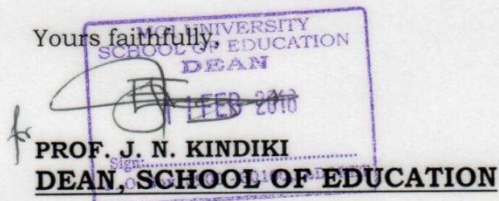 Yours faithfully,
UNIVERSITY
SCHOOL OF EDUCATION
DEAN
FEB
for
PROF. J. N. KINDIKI
Sign:
DEAN, SCHOOL OF EDUCATION